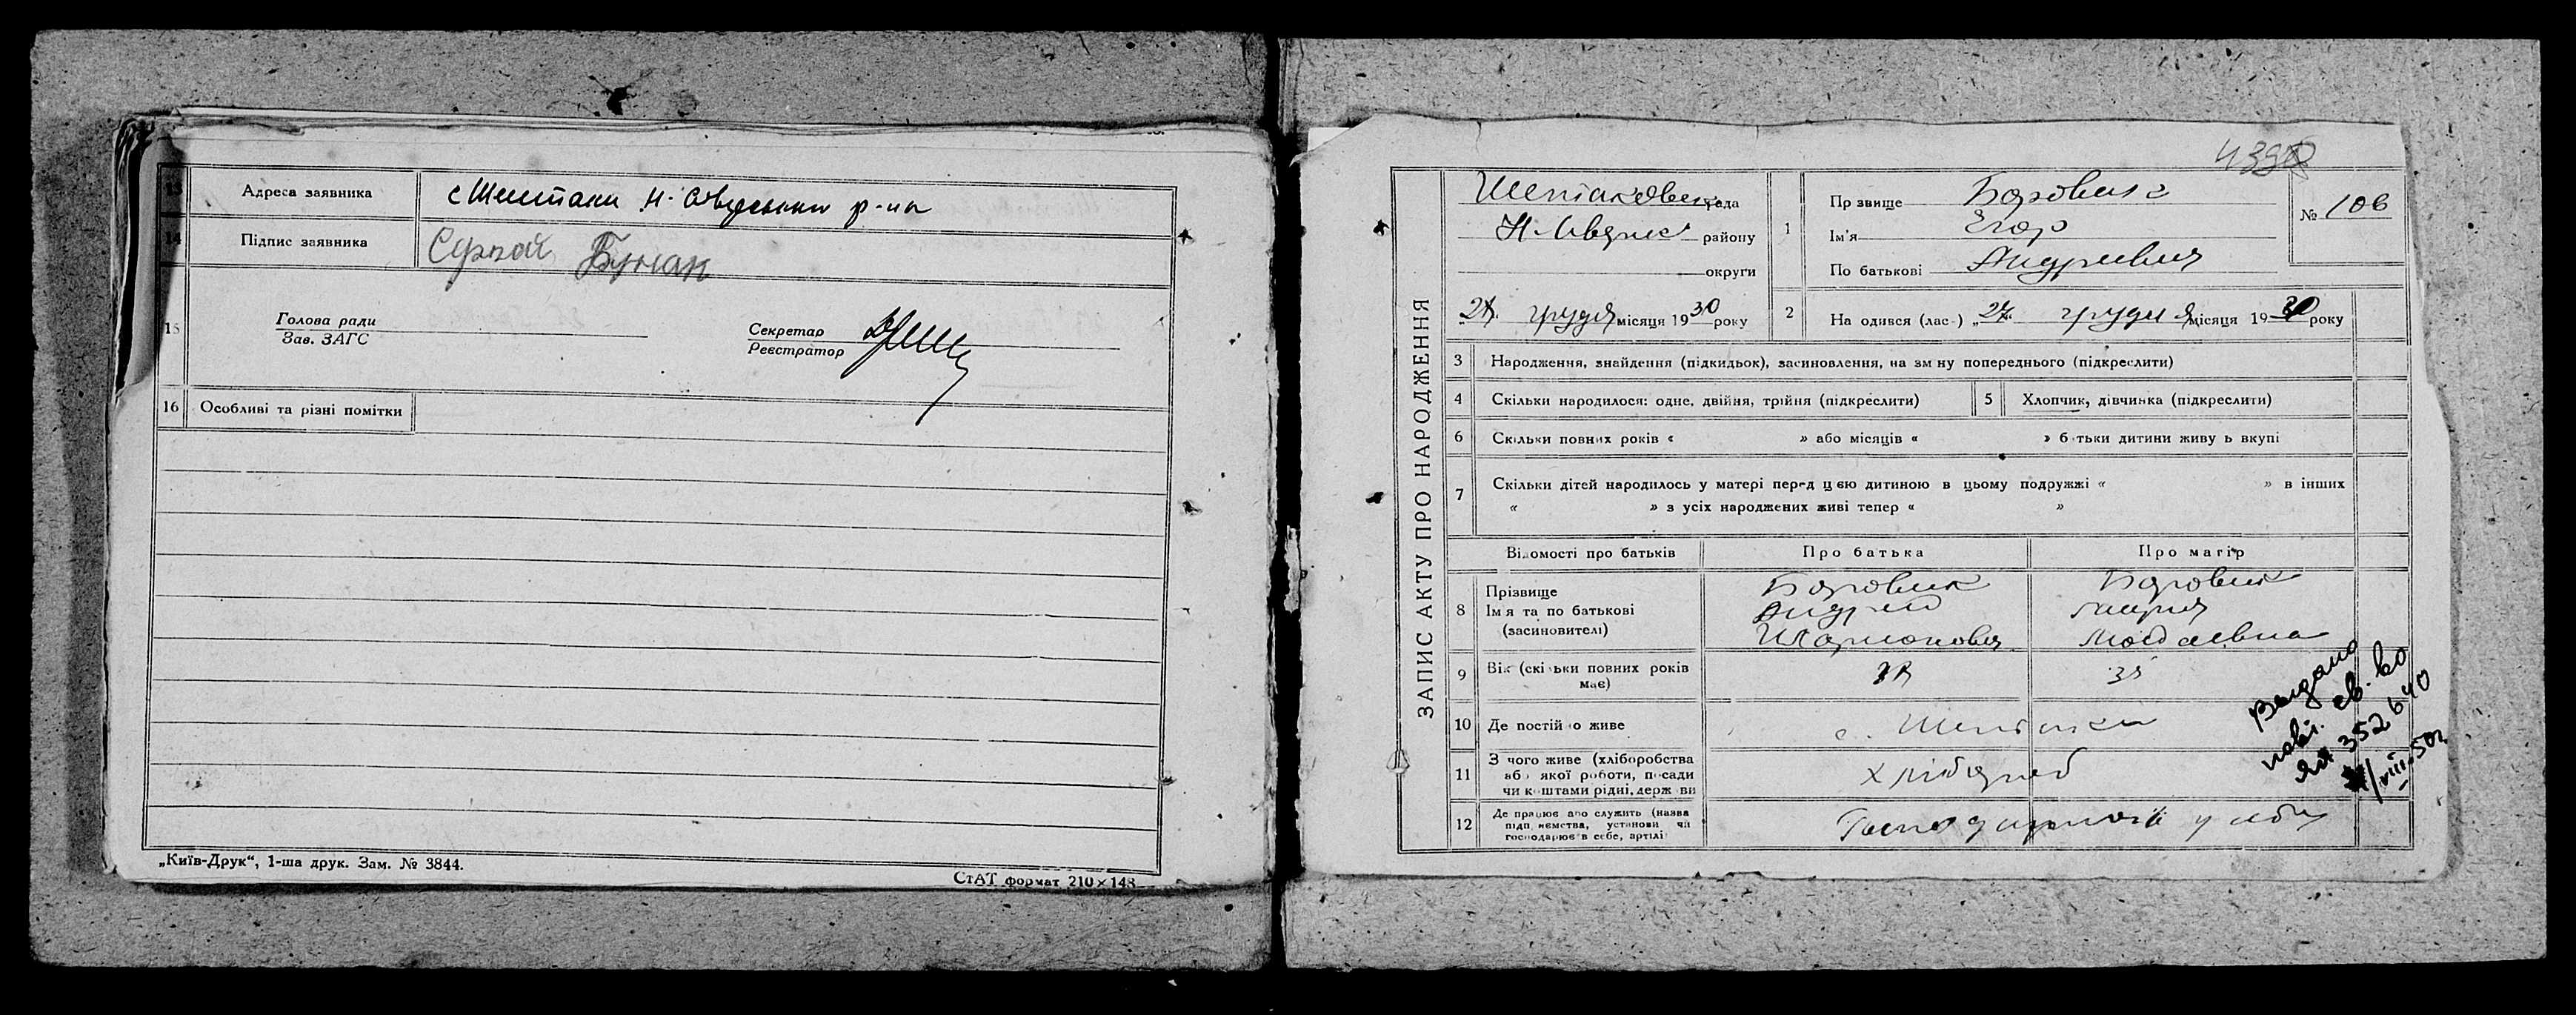 13 Адреса заявника с Шептаки Н-Сіверський р-на
14 Підпис заявника Сергей Бумак
15 Голова ради
Зав. ЗАГС
Секретар
Реєстратор
16 Особливі та різні помітки
„Київ-Друк“, 1-ша друк. Зам. № 3844.
СтАТ формат 210×148
ЗАПИС АКТУ ПРО НАРОДЖЕННЯ
Шептаковська рада
Н-Сіверськ району
округи
грудня місяця 1930 року
1 Прізвище Боровик
Ім'я Егор
По батькові Андриевич
№ 106
2 На одився (лас-) „ грудня місяця 1930 року
3 Народження, знайдення (підкидьок), засиновлення, на зм ну попереднього (підкреслити)
4 Скільки народилося: одне, двійня, трійня (підкреслити)
5 Хлопчик, дівчинка (підкреслити)
6 Скільки повних років « » або місяців « » б тьки дитини живу ь вкупі
7 Скільки дітей народилось у матері перед цією дитиною в цьому подружжі « » в інших
« » з усіх народжених живі тепер « »
Відомості про батьків Про батька Про матір
8 Прізвище Боровик Боровик
Ім я та по батькові Андрей Мария
(засиновителі) Иларионович
9 Вік (скільки повних років має) 35
10 Де постійно живе с. Шептаки
11 З чого живе (хліборобства або якої роботи, посади чи коштами рідні, держави хлібороб
12 Де працює або служить (назва підприємства, установи чи господарює в себе, артілі
Выдано
повт. св-во
352640
/VIII.50г